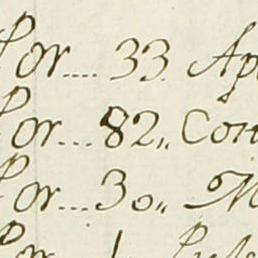 Por.... 33. Ap
Por... 82,, Con
Por.... 30,, M
Por